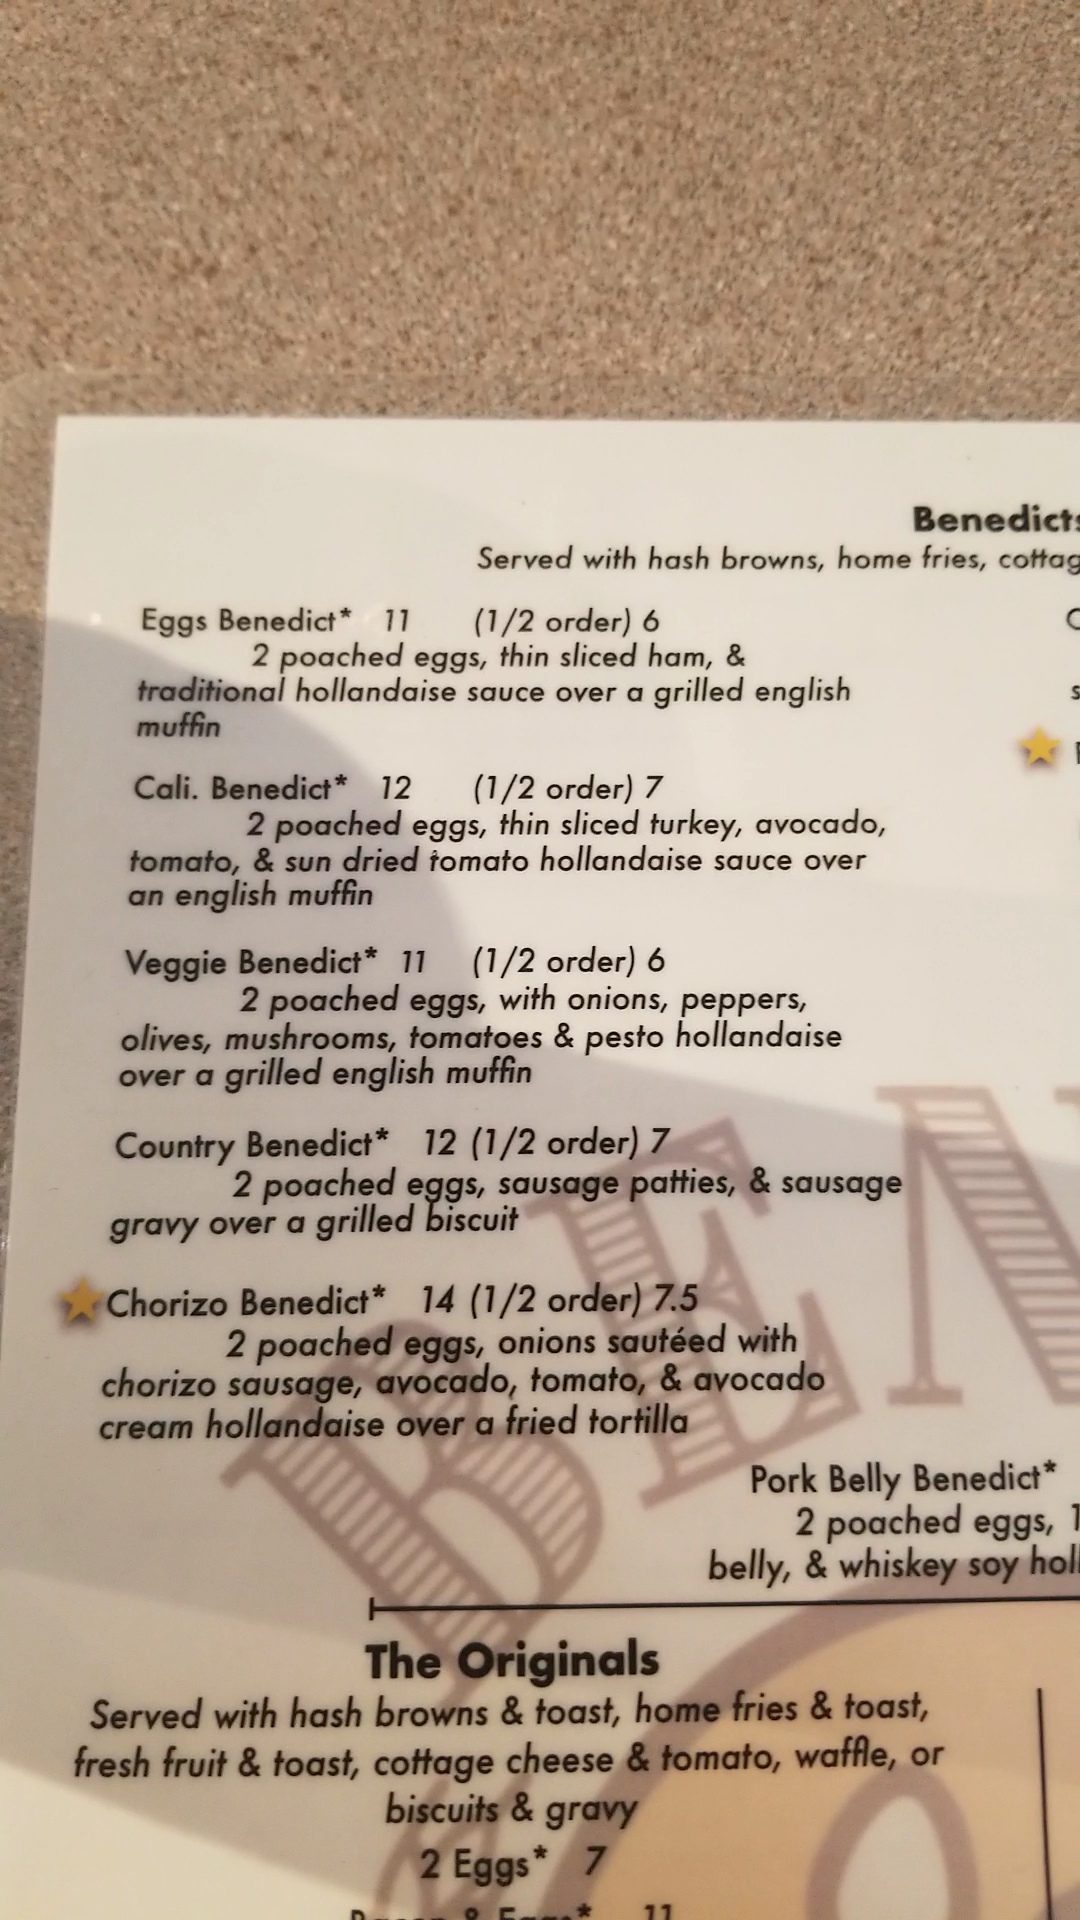 Benedicts
Served with hash browns, home fries,
Eggs Benedict* 11 (1/2 order) 6
2 poached eggs, thin sliced ham, &
traditional hollandaise sauce over a grilled english
muffin
Cali. Benedict* 12 (1/2 order) 7
2 poached eggs, thin sliced turkey, avocado,
tomato, & sun dried tomato hollandaise sauce over
an english muffin
Veggie Benedict* 11 (1/2 order) 6
2 poached eggs, with onions, peppers,
olives, mushrooms, tomatoes & pesto hollandaise
over a grilled english muffin
Country Benedict* 12 (1/2 order) 7
2 poached eggs, sausage patties, & sausage
gravy over a grilled biscuit
Chorizo Benedict* 14 (1/2 order) 7.5
2 poached eggs, onions sautéed with
chorizo sausage, avocado, tomato, & avocado
cream hollandaise over a fried tortilla
BEN
Pork Belly Benedict*
2 poached eggs,
belly, & whiskey soy
The Originals
Served with hash browns & toast, home fries & toast,
fresh fruit & toast, cottage cheese & tomato, waffle, or
biscuits & gravy
2 Eggs* 7
Bacon & Eggs* 11